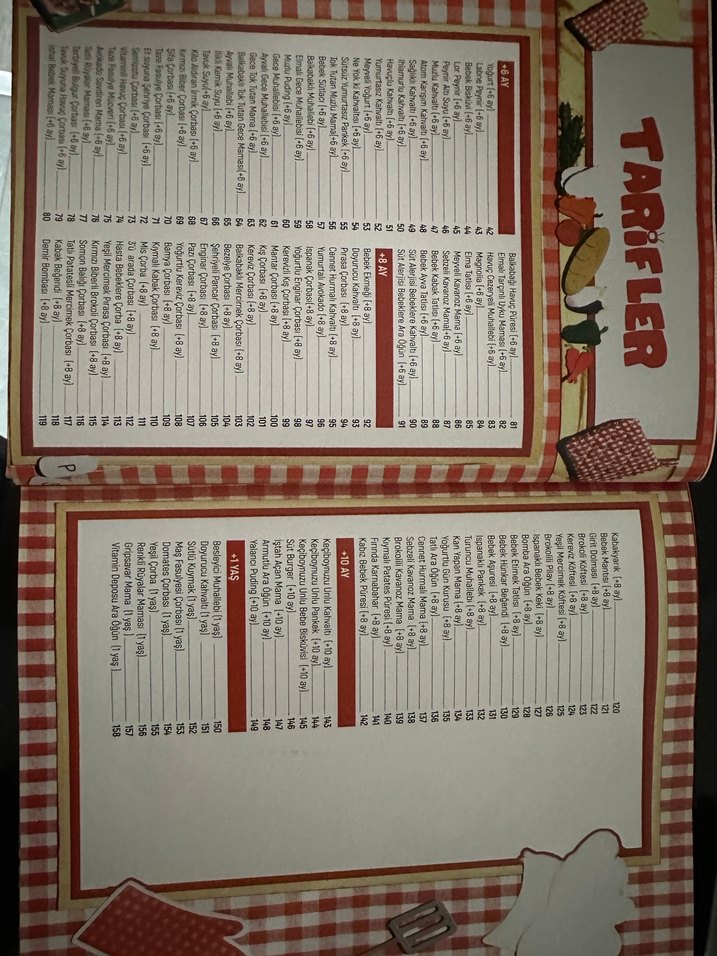 TARİFLER
+6 AY
Yoğurt (+6 ay) 42
Labne Peynir (+6 ay) 43
Bebek Bisküvi (+6 ay) 44
Lor Peynir (+6 ay) 45
Peynir Altı Suyu (+6 ay) 46
Mutlu Kahvaltı (+6 ay) 47
Atom Karışım Kahvaltı (+6 ay) 48
Sağlıklı Kahvaltı (+6 ay) 49
Ihlamurlu Kahvaltı (+6 ay) 50
Havuçlu Kahvaltı (+6 ay) 51
Yumurtasız Kahvaltı (+6 ay) 52
Meyveli Yoğurt (+6 ay) 53
Ne Yok ki Kahvaltısı (+6 ay) 54
Sütsüz Yumurtasız Pankek (+6 ay) 55
Tok Tutan Muzlu Mama(+6 ay) 56
Bebek Sütlacı (+6 ay) 57
Balkabaklı Muhallebi (+6 ay) 58
Elmalı Gece Muhallebisi (+6 ay) 59
Muzlu Puding (+6 ay) 60
Gece Muhallebisi (+6 ay) 61
Ayvalı Gece Muhallebisi (+6 ay) 62
Gece Tok Tutan Mama (+6 ay) 63
Balkabaklı Tok Tutan Gece Maması(+6 ay) 64
Ayvalı Muhallebi (+6 ay) 65
İlikli Kemik Suyu (+6 ay) 66
Tavuk Suyu(+6 ay) 67
Kilo Aldıran İrmik Çorbası (+6 ay) 68
Kırmızı Biber Çorbası (+6 ay) 69
Şifa Çorbası (+6 ay) 70
Taze Fasulye Çorbası (+6 ay) 71
Et suyuna Şehriye Çorbası (+6 ay) 72
Semizotu Çorbası (+6 ay) 73
Vitaminli Havuç Çorbası (+6 ay) 74
Taze Fasulye Mücveri (+6 ay) 75
Avokado Sevdiren Mama (+6 ay) 76
Tatlı Rüyalar Maması (+6 ay) 77
Terbiyeli Bulgur Çorbası (+6 ay) 78
Tavuk Suyuna Havuç Çorbası (+6 ay) 79
İshal Bebek Maması (+6 ay) 80
Balkabağı Havuç Püresi (+6 ay) 81
Elmalı Tarçınlı Uyku Maması (+6 ay) 82
Havuç Cezeryeli Muhallebi (+6 ay) 83
Magnolia (+6 ay) 84
Elma Tatlısı (+6 ay) 85
Meyveli Kavanoz Mama (+6 ay) 86
Sebzeli Kavanoz Mama(+6 ay) 87
Bebek Kabak Tatlısı (+6 ay) 88
Bebek Ayva Tatlısı (+6 ay) 89
Süt Alerjisi Bebeklere Kahvaltı (+6 ay) 90
Süt Alerjisi Bebeklere Ara Öğün (+6 ay) 91
+8 AY
Bebek Ekmeği (+8 ay) 92
Doyurucu Kahvaltı (+8 ay) 93
Pırasa Çorbası (+8 ay) 94
Cennet Hurmalı Kahvaltı (+8 ay) 95
Yumurtalı Avokado (+8 ay) 96
Ispanak Çorbası(+8 ay) 97
Yoğurtlu Enginar Çorbası (+8 ay) 98
Kerevizli Kış Çorbası (+8 ay) 99
Mantar Çorbası (+8 ay) 100
Kış Çorbası (+8 ay) 101
Kereviz Çorbası (+8 ay) 102
Balkabaklı Mercimek Çorbası (+8 ay) 103
Bezelye Çorbası (+8 ay) 104
Şehriyeli Pancar Çorbası (+8 ay) 105
Enginar Çorbası (+8 ay) 106
Pazı Çorbası (+8 ay) 107
Yoğurtlu Kereviz Çorbası (+8 ay) 108
Bamya Çorbası (+8 ay) 109
Kıymalı Kabak Çorbası (+8 ay) 110
Mis Çorba (+8 ay) 111
3'ü arada Çorba (+8 ay) 112
Hasta Bebeklere Çorba (+8 ay) 113
Yeşil Mercimek Pırasa Çorbası (+8 ay) 114
Kırmızı Biberli Brokoli Çorbası (+8 ay) 115
Somon Balığı Çorbası (+8 ay) 116
Tatlı Patatesli Mercimek Çorbası (+8 ay) 117
Kabak Beğendi (+8 ay) 118
Demir Bombası (+8 ay) 119
Kabakyarık (+8 ay) 120
Bebek Mantısı (+8 ay) 121
Girit Dolması (+8 ay) 122
Brokoli Köftesi (+8 ay) 123
Kereviz Köftesi (+8 ay) 124
Yeşil Mercimek Köftesi (+8 ay) 125
Brokolili Pilav (+8 ay) 126
Ispanaklı Bebek Keki (+8 ay) 127
Bomba Ara Öğün (+8 ay) 128
Bebek Etimek Tatlısı (+8 ay) 129
Bebek Hünkar Beğendi (+8 ay) 130
Bebek Aşuresi (+8 ay) 131
Ispanaklı Pankek (+8 ay) 132
Turuncu Muhallebi (+8 ay) 133
Kan Yapan Mama (+8 ay) 134
Yoğurtlu Gün Kurusu (+8 ay) 135
Tatlı Ara Öğün (+8 ay) 136
Cennet Hurmalı Mama (+8 ay) 137
Sebzeli Kavanoz Mama (+8 ay) 138
Brokolili Kavanoz Mama (+8 ay) 139
Kıymalı Patates Püresi (+8 ay) 140
Fırında Karnabahar (+8 ay) 141
Kabız Bebek Püresi (+8 ay) 142
+10 AY
Keçiboynuzu Unlu Kahvaltı (+10 ay) 143
Keçiboynuzu Unlu Pankek (+10 ay) 144
Keçiboynuzu Unlu Bebe Bisküvisi (+10 ay) 145
Süt Burger (+10 ay) 146
İştah Açan Mama (+10 ay) 147
Armutlu Ara Öğün (+10 ay) 148
Yalancı Puding (+10 ay) 149
+1 YAŞ
Besleyici Muhallebi (1 yaş) 150
Doyurucu Kahvaltı (1 yaş) 151
Sütlü Kuymak (1 yaş) 152
Maş Fasulyesi Çorbası (1 yaş) 153
Domates Çorbası (1 yaş) 154
Yeşil Çorba (1 yaş) 155
Renkli Rüyalar Maması (1 yaş) 156
Gripsavar Mama (1 yaş) 157
Vitamin Deposu Ara Öğün (1 yaş) 158